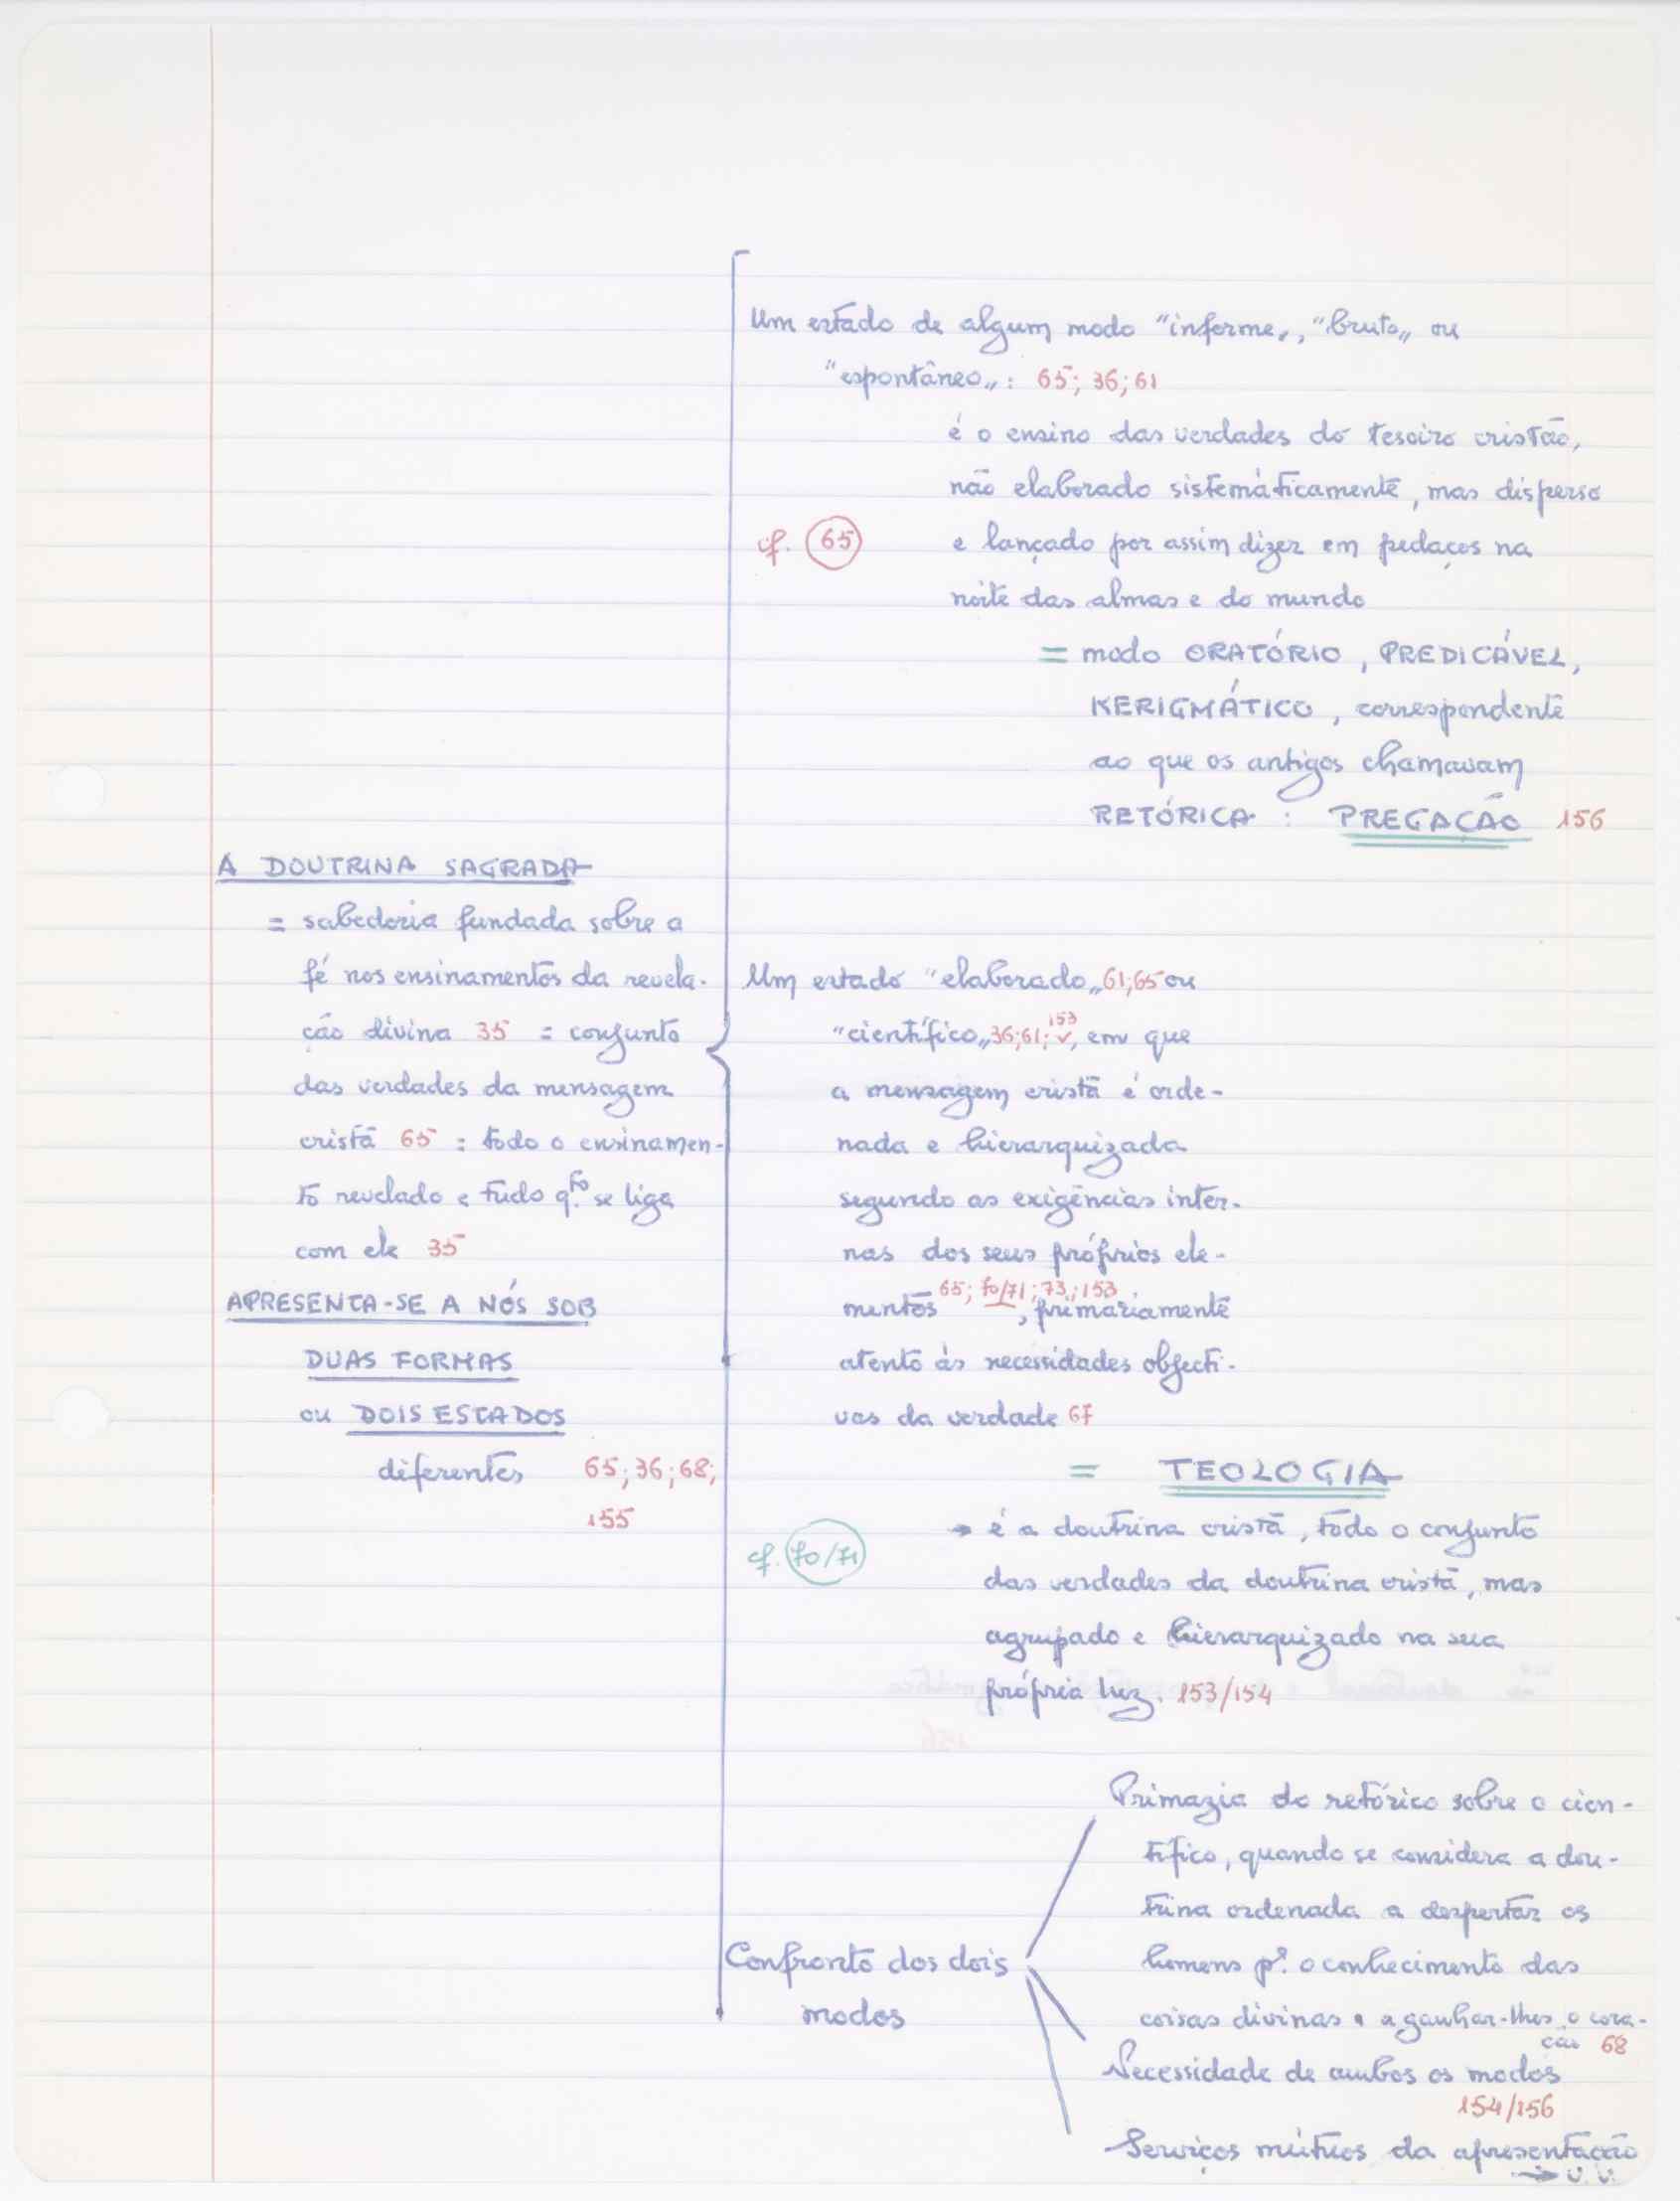 A DOUTRINA SAGRADA
= sabedoria fundada sobre a
fé nos ensinamentos da revela-
ção divina 35 = conjunto
das verdades da mensagem
cristã 65 : todo o ensinamen-
to revelado e tudo q.to se liga
com ele 35
APRESENTA-SE A NÓS SOB
DUAS FORMAS
ou DOIS ESTADOS
diferentes 65; 36; 68;
155
Um estado de algum modo "informe„, "bruto„ ou
"espontâneo„: 65; 36; 61
é o ensino das verdades do tesoiro cristão,
não elaborado sistemàticamente, mas disperso
cf. 65 e lançado por assim dizer em pedaços na
noite das almas e do mundo
= modo ORATÓRIO, PREDICÁVEL,
KERIGMÁTICO, correspondente
ao que os antigos chamavam
RETÓRICA : PREGAÇÃO 156
Um estado "elaborado„ 61; 65 ou
"científico„ 36; 61; 153, em que
a mensagem cristã é orde-
nada e hierarquizada
segundo as exigências inter-
nas dos seus próprios ele-
mentos 65; 70/71; 73; 153, primariamente
atento às necessidades objecti-
vas da verdade 67
= TEOLOGIA
→ é a doutrina cristã, todo o conjunto
cf. 70/71
das verdades da doutrina cristã, mas
agrupado e hierarquizado na sua
própria luz. 153/154
Confronto dos dois
modos
Primazia do retórico sobre o cien-
tífico, quando se considera a dou-
trina ordenada a despertar os
homens p.ª o conhecimento das
coisas divinas e a ganhar-lhes o cora-
ção 68
Necessidade de ambos os modos
154/156
Serviços mútuos da apresentação
→ v. v.